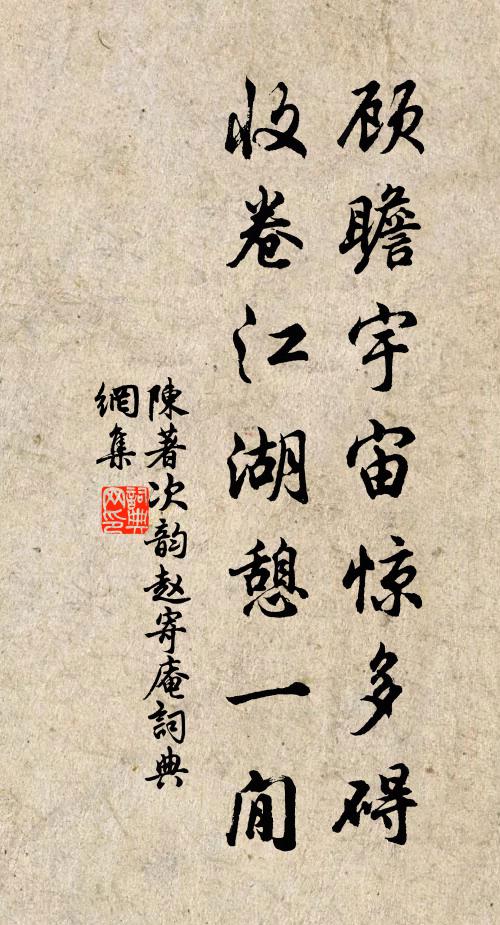 顾瞻宇宙惊多碍
收卷江湖憩一间
陳著次韵赵寄庵詞典
網集
詞典网印